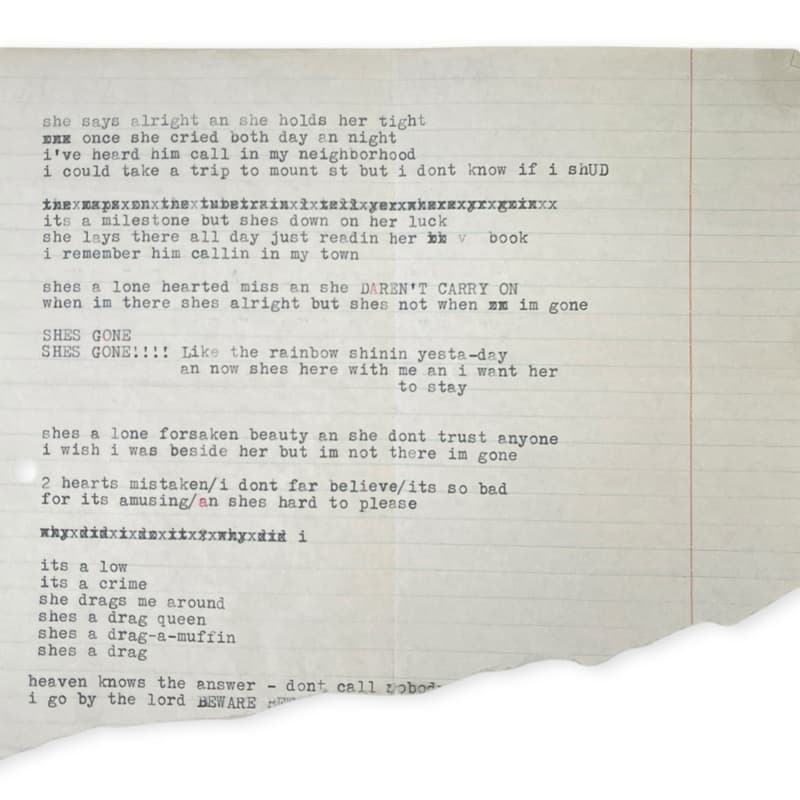 she says alright an she holds her tight
once she cried both day an night
i've heard him call in my neighborhood
i could take a trip to mount st but i dont know if i shUD
the maps on the tube train i tell yer where yr goin
its a milestone but shes down on her luck
she lays there all day just readin her v book
i remember him callin in my town
shes a lone hearted miss an she DAREN'T CARRY ON
when im there shes alright but shes not when im gone
SHES GONE
SHES GONE!!!! Like the rainbow shinin yesta-day
an now shes here with me an i want her
to stay
shes a lone forsaken beauty an she dont trust anyone
i wish i was beside her but im not there im gone
2 hearts mistaken/i dont far believe/its so bad
for its amusing/an shes hard to please
why did i do it? why did i
its a low
its a crime
she drags me around
shes a drag queen
shes a drag-a-muffin
shes a drag
heaven knows the answer - dont call nobody
i go by the lord BEWARE